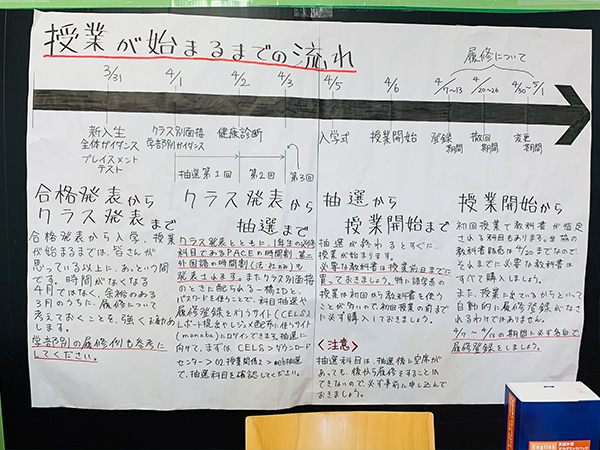 授業が始まるまでの流れ
履修について
3/31
4/1
4/2
4/3
4/5
4/6
4/7~13
4/20~26
4/30~5/1
新入生
全体ガイダンス
プレイスメント
テスト
クラス別面接
学部別ガイダンス
健康診断
入学式
授業開始
登録
期間
撤回
期間
変更
期間
抽選第1回
第2回
第3回
合格発表から
クラス発表まで
合格発表から入学、授業
が始まるまでは、皆さんが
思っている以上に、あっという間
です。時間がなくなる
4月ではなく、余裕のある
3月のうちに、履修について
考えておくことを、強くお勧め
します。
学部別の履修例も参考に
してください。
クラス発表から
抽選まで
クラス発表とともに、1年生の必修
科目であるPACEの時間割、第二
外国語の時間割
発表されます。またクラス別面接
のときに配られる一橋IDと
パスワードを使うことで、科目抽選や
履修登録を行うサイト(CELS)
レポート提出やレジュメ配布に使うサイト
(manaba)にログインできます。抽選に
向けて、まずは CELS>ダウンロード
センター>
で、抽選科目を確認してください。
抽選から
授業開始まで
抽選が終わるとすぐに、
授業が始まります。
必要な教科書は授業前日までに
買っておきましょう。特に語学系
の授業は初回から教科書を使う
ことが多いので、初回授業の前まで
に必ず購入しておきましょう。
<注意>
抽選科目は、抽選後に空席が
あっても、後から履修をすることは
できないので、必ず事前に申し込んで
おきましょう。
授業開始から
初回授業で教科書が指定
される科目もあります。生協の
教科書販売は4/20までなので
それまでに必要な教科書は
すべて購入しましょう。
また、授業に出ているからといって
自動的に履修登録がなさ
れるわけではありません。
4/7~4/13の期間に必ず各自で
履修登録をしましょう。
English